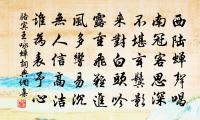 西陸蟬聲唱
南冠客思深
不堪玄鬢影
來對白頭吟
露重飛難進
風多響易沉
無人信高潔
誰為表予心
駱賓王詠蟬詞